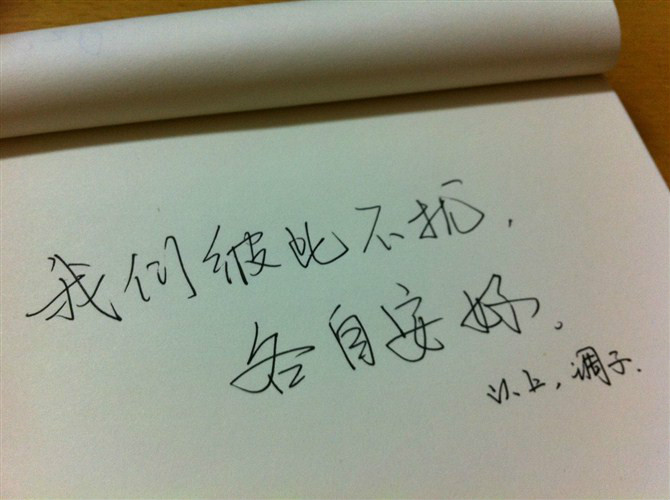 我们彼此不扰,
各自安好。
以上,调子.